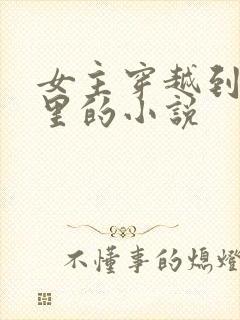 女主穿越到
里的小说
不懂事的熄燈